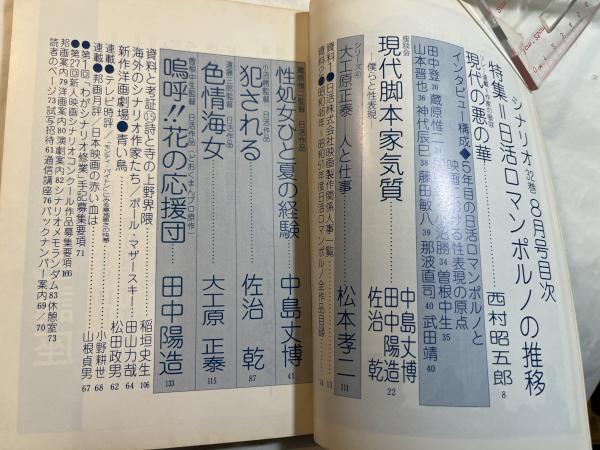 シナリオ 32巻 8月号目次
特集＝日活ロマンポルノの推移
現代の悪の華
西村昭五郎 8
インタビュー構成◆5年目の日活ロマンポルノと
映画における性表現の原点
田中登 30
蔵原惟二
小沼勝 34
曽根中生 35
山本晋也 36
神代辰巳 38
藤田敏八 39
那波直司 40
武田靖 40
座談会
現代脚本家気質
─僕らと性表現
中島丈博
田中陽造
佐治 乾 22
シリーズ④
大工原正泰 人と仕事
松本孝二 111
資料1●日活株式会社映画製作関係人事一覧 13
資料2●昭和46年～昭和51年度日活ロマンポルノ全作品目録 14
蔵原惟二監督 日活作品
性処女ひと夏の経験
中島丈博 47
小沼勝監督 日活作品
犯される
佐治 乾 87
遠藤三郎監督 日活作品
色情海女
大工原 正泰 115
曽根中生監督 日活作品(どおくまんプロ原作)
嗚呼!!花の応援団
田中陽造 133
資料と考証⑮詩と寺の上野界隈
稲垣史生 106
海外のシナリオ作家たち/ポール マザースキー
田山力哉 64
新作洋画劇場●青い鳥
松田政男 62
連載●テレビ時評
小野耕世 68
連載●邦画月評/日本映画の赤い血は
山根貞男 67
●第1回「わがシナリオ修業」手記募集要項 71
●第27回新人映画シナリオコンクール作品募集要項 105
邦画案内 79 洋画案内 80 演劇案内 82 シナリオメモランダム 83 休憩室 73
読者のページ 73 試写招待 61 通信講座 76 バックナンバー案内 69/70